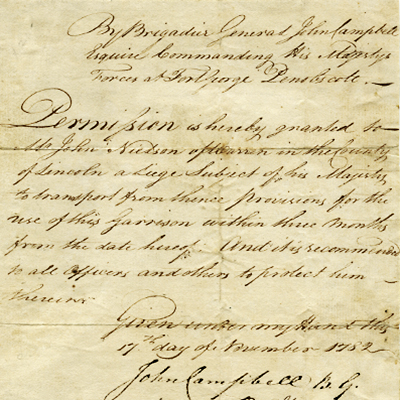 By Brigadier General John Campbell
Esquire Commanding His Majestys
Forces at Fort George Penobscote.
Permission is hereby granted to
Mr John Neilson of Warren in the County
of Lincoln a Liege Subject of his Majesty
to transport from thence provisions for the
use of this Garrison within three months
from the date hereof. And it is recommended
to all Officers and others to protect him
therein
Given under my Hand this
17th day of November 1782
John Campbell B. G.